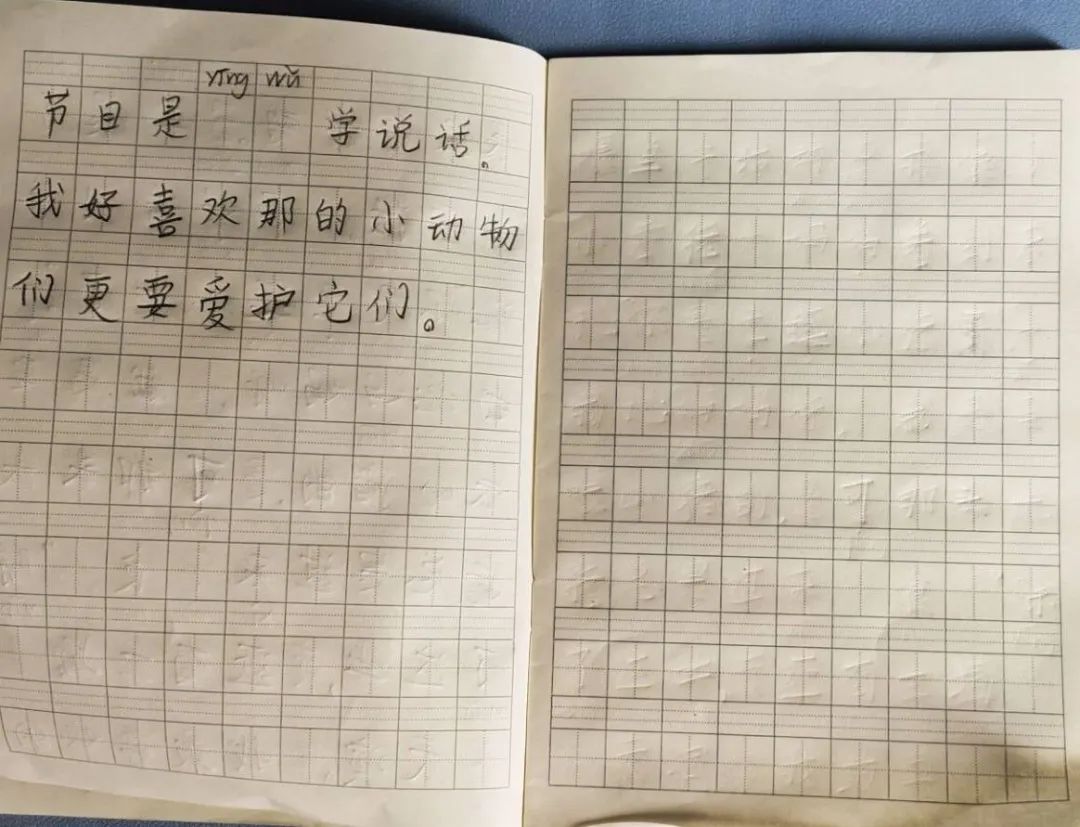 yīng wǔ
节目是 学说话。
我好喜欢那的小动物
们更要爱护它们。